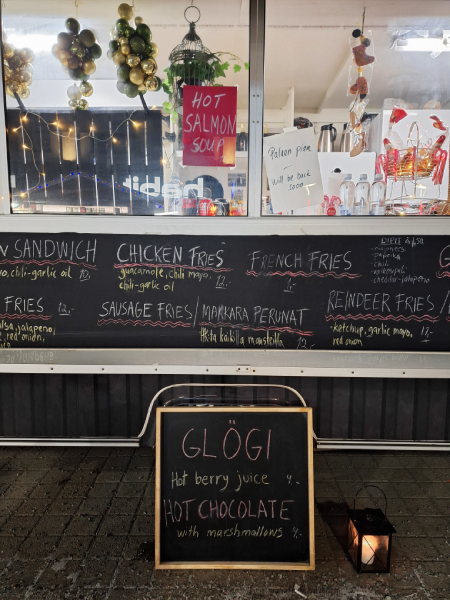 HOT
SALMON
SOUP
Palaan pian
will be back
soon
SANDWICH
chili-garlic oil 12,-
CHICKEN FRIES
guacamole, chili mayo,
chili-garlic oil
FRENCH FRIES
DIPIT á 1,50
FRIES 12,-
salsa, jalapeno,
red onion,
SAUSAGE FRIES / MAKKARA PERUNAT
kaikilla mausteilla 12,-
REINDEER FRIES /
ketchup, garlic mayo, 13,-
red onion
GLÖGI
Hot berry juice 4,-
HOT CHOCOLATE
with marshmallows 4,-